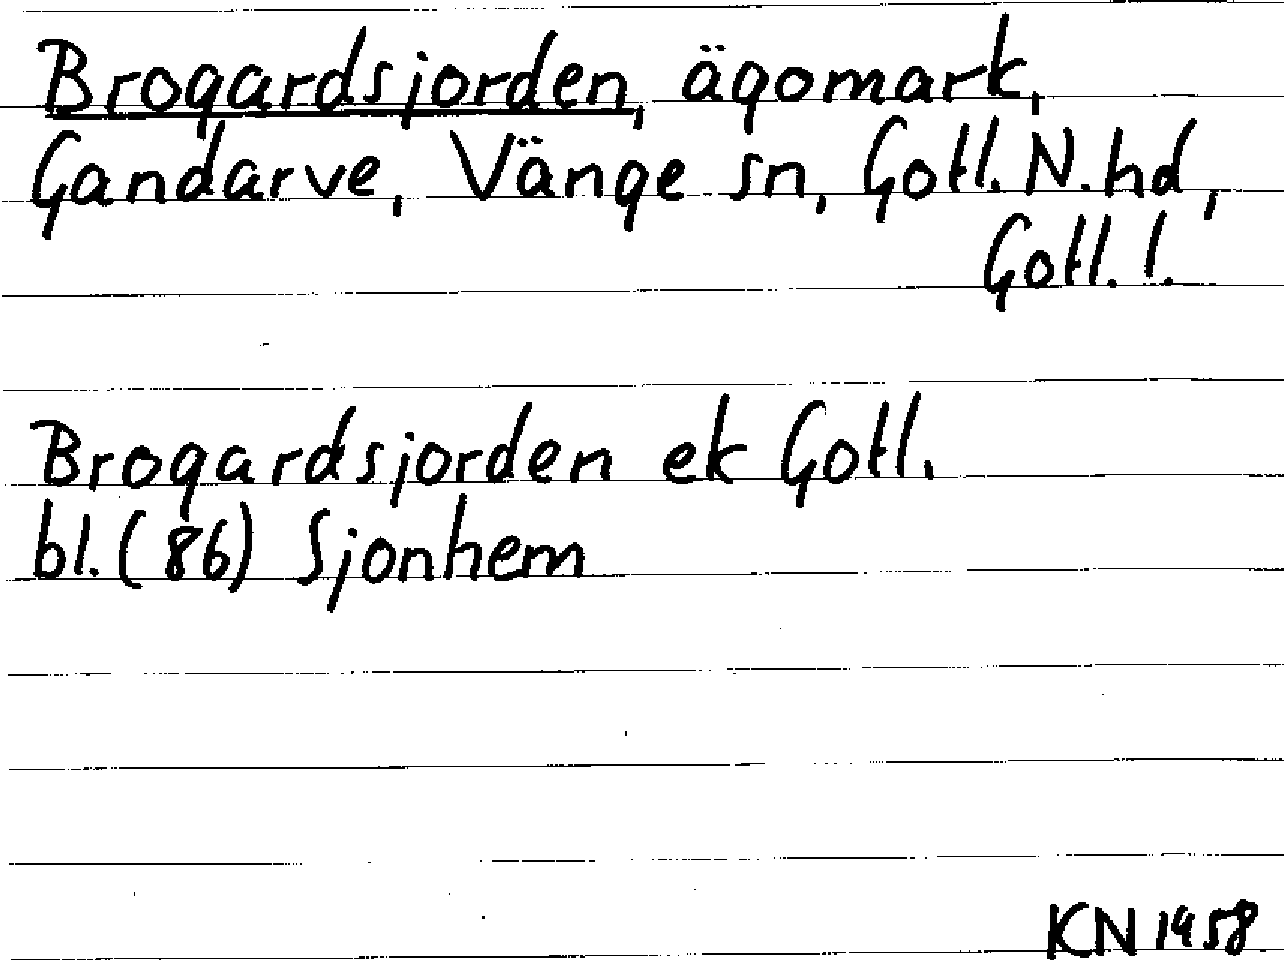 Brogardsjorden, ägomark,
Gandarve, Vänge sn, Gotl. N. hd,
Gotl. l.
Brogardsjorden ek Gotl.
bl. (86) Sjonhem
KN 1958